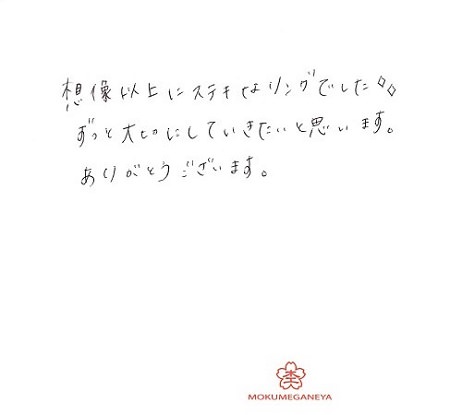 想像以上にステキなリングでした◇◇
ずっと大切にしていきたいと思います。
ありがとうございます。
MOKUMEGANEYA